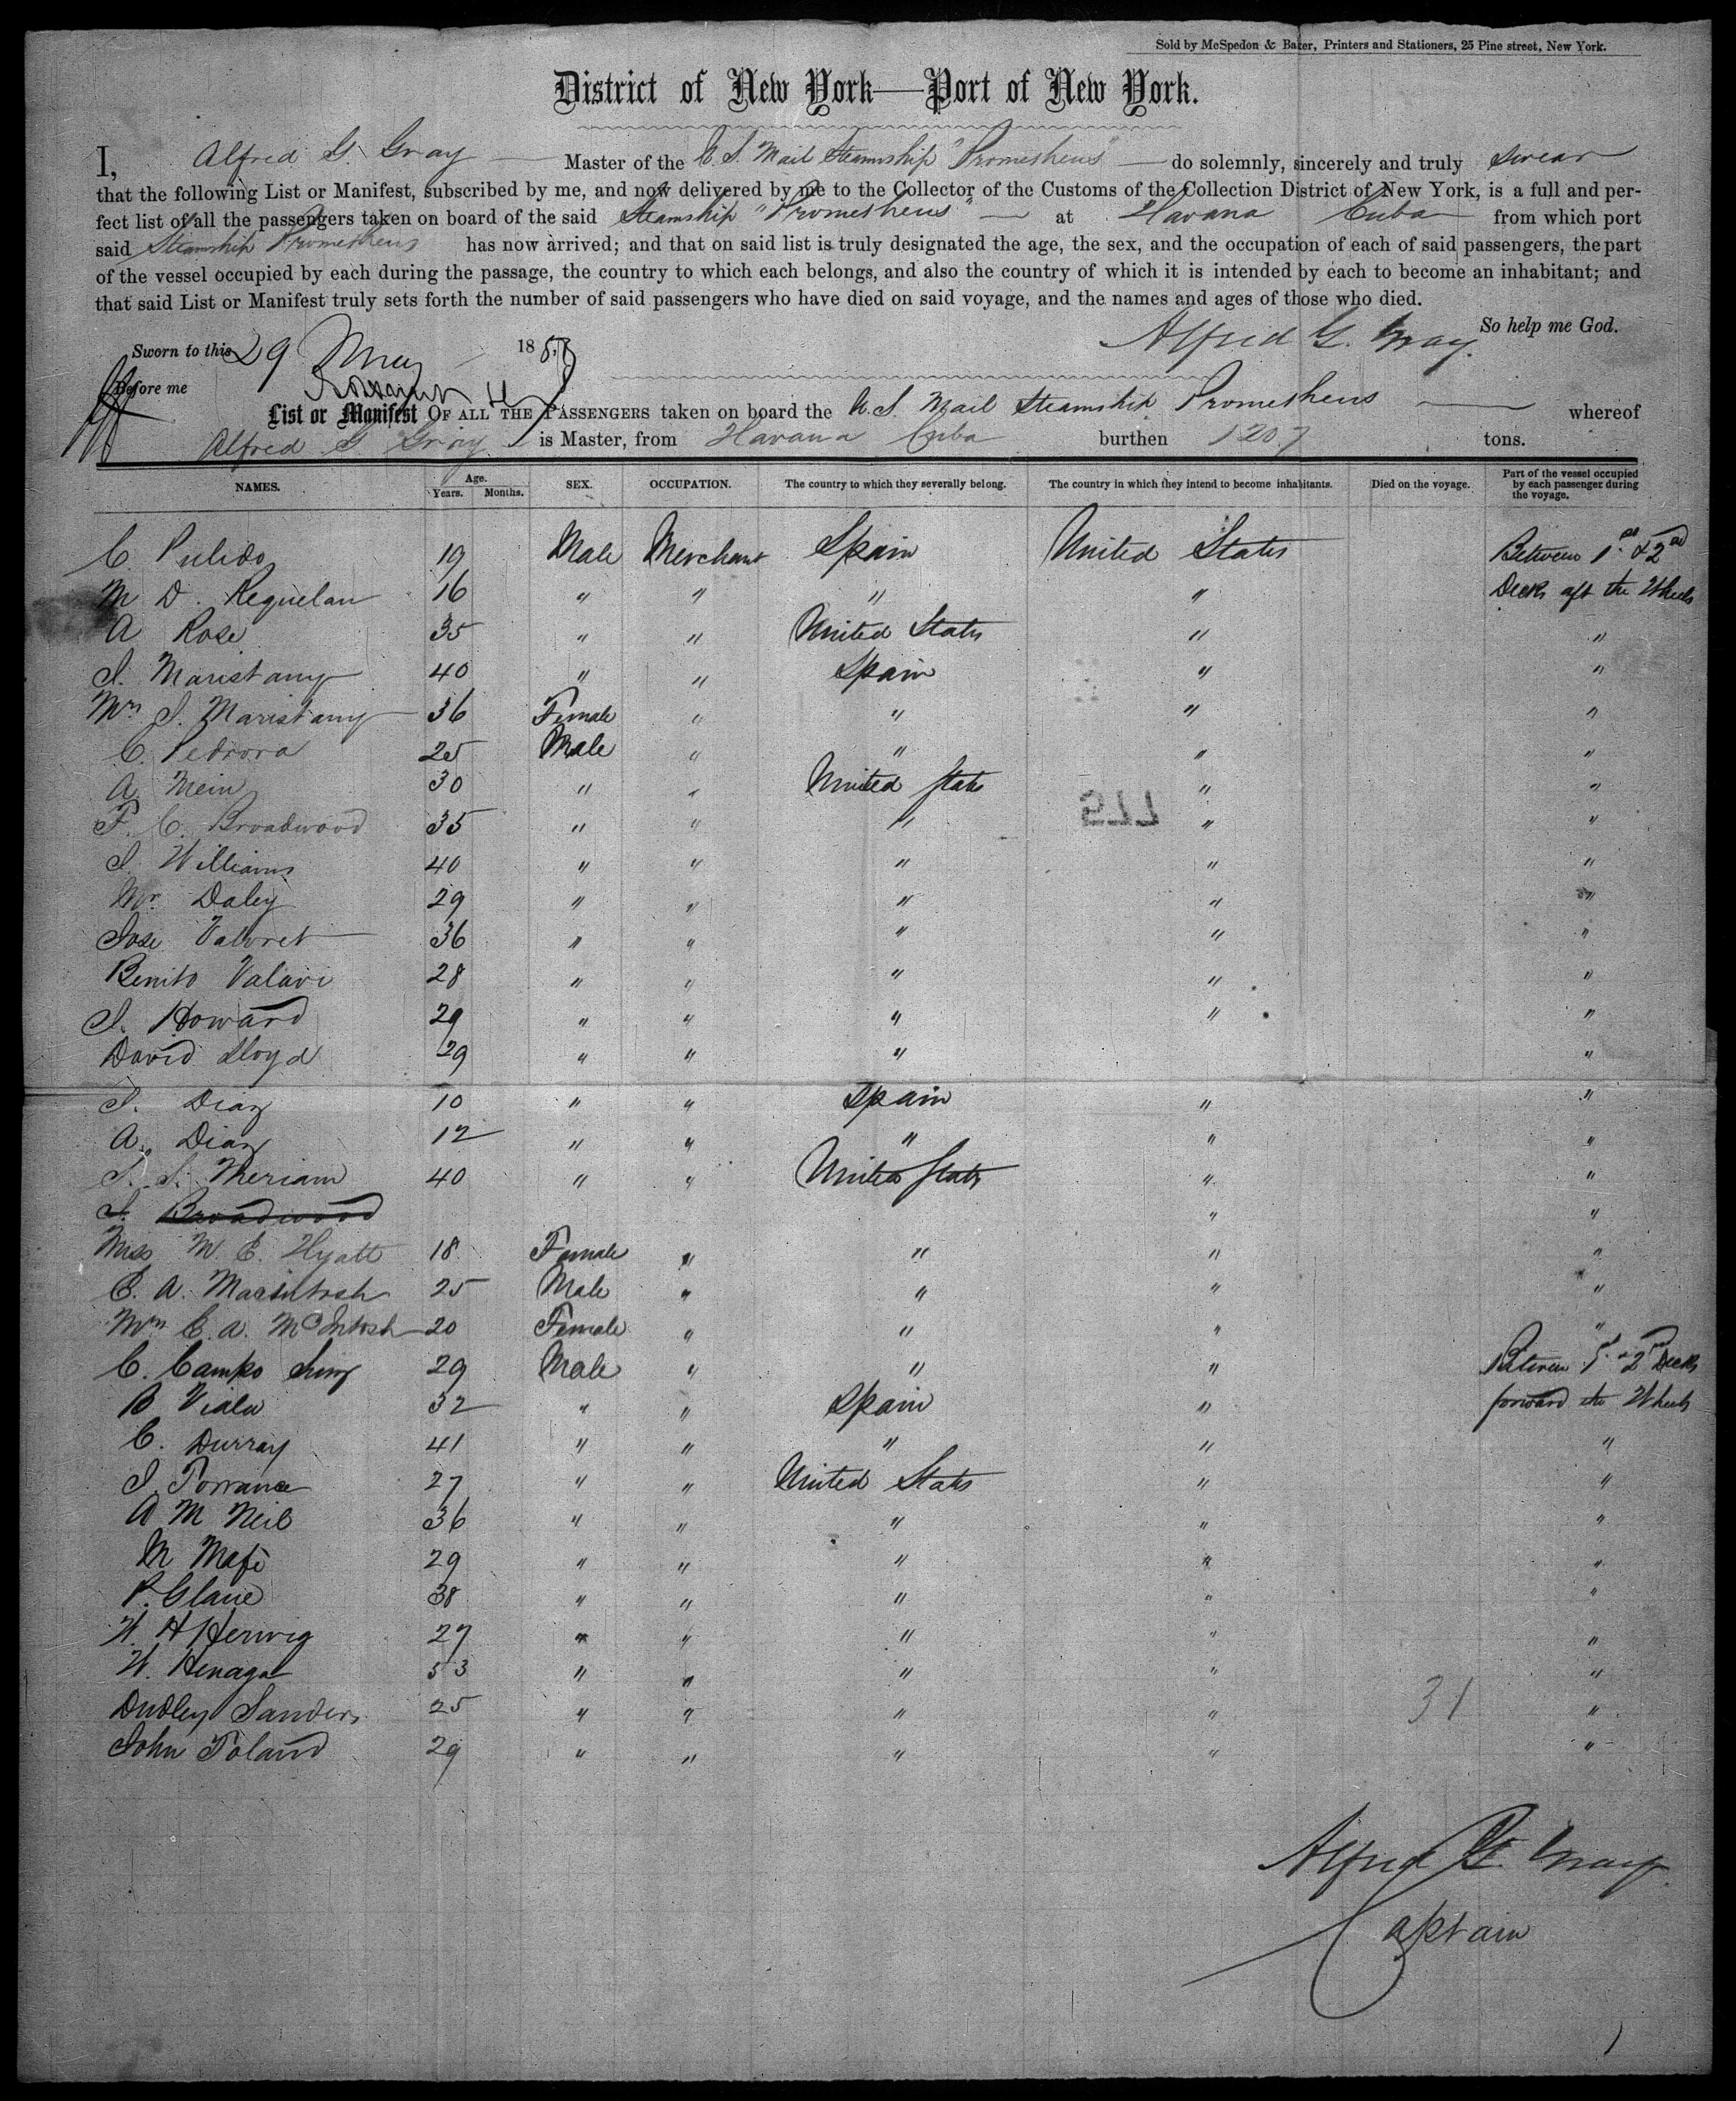 Sold by McSpedon & Baker, Printers and Stationers, 25 Pine street, New York.
District of New York—Port of New York.
I, Alfred G. Gray Master of the U.S. Mail Steamship "Prometheus" do solemnly, sincerely and truly swear
that the following List or Manifest, subscribed by me, and now delivered by me to the Collector of the Customs of the Collection District of New York, is a full and per-
fect list of all the passengers taken on board of the said Steamship "Prometheus" at Havana Cuba from which port
said Steamship Prometheus has now arrived; and that on said list is truly designated the age, the sex, and the occupation of each of said passengers, the part
of the vessel occupied by each during the passage, the country to which each belongs, and also the country of which it is intended by each to become an inhabitant; and
that said List or Manifest truly sets forth the number of said passengers who have died on said voyage, and the names and ages of those who died.
So help me God.
Alfred G. Gray.
Sworn to this 29 May 185
Before me
List or Manifest OF ALL THE PASSENGERS taken on board the U.S. Mail Steamship Prometheus whereof
Alfred G Gray is Master, from Havana Cuba burthen 1207 tons.
NAMES. Age. Years. Months. SEX. OCCUPATION. The country to which they severally belong. The country in which they intend to become inhabitants. Died on the voyage. Part of the vessel occupied by each passenger during the voyage.
C. Pulido 19 Male Merchant Spain United States Between 1st & 2nd
M D. Requelan 16 " " " " Decks aft the Wheels
A Rose 35 " " United States " "
J. Maristany 40 " " Spain " "
Mrs J. Maristany 36 Female " " " "
C. Pedrora 25 Male " " " "
A Mein 30 " " United States " "
F. C. Broadwood 35 " " " " "
J. Williams 40 " " " " "
Mr. Daley 29 " " " " "
Jose Valoret 36 " " " " "
Benito Valari 28 " " " " "
J. Howard 29 " " " " "
David Lloyd 29 " " " "
J. Diaz 10 " " Spain " "
A. Diaz 12 " " " " "
J. S. Meriam 40 " " United States " "
J. Broadwood " "
Miss M. E. Hyatt 18 Female " " " "
E. A. Macintosh 25 Male " " " "
Mrs E. A. McIntosh 20 Female " " " "
C. Campo Sing 29 Male " " " Between 1st & 2nd Decks
B Viala 32 " " Spain " forward the Wheels
C. Durray 41 " " " " "
J. Torrance 27 " " United States " "
A M Neil 36 " " " " "
M Mafi 29 " " " " "
P. Glane 38 " " " " "
W. H Herwig 27 " " " " "
W. Henagal 53 " " " " "
Dudley Sanders 25 " " " " "
John Toland 29 " " " " "
31
Alfred G. Gray
Captain